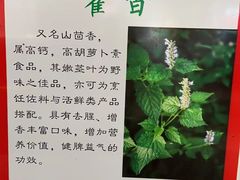 藿香
又名山茴香，
属高钙，高胡萝卜素
食品，其嫩茎叶为野
味之佳品，亦可为烹
饪佐料与活鲜类产品
搭配。具有去腥、增
香丰富口味，增加营
养价值，健脾益气的
功效。